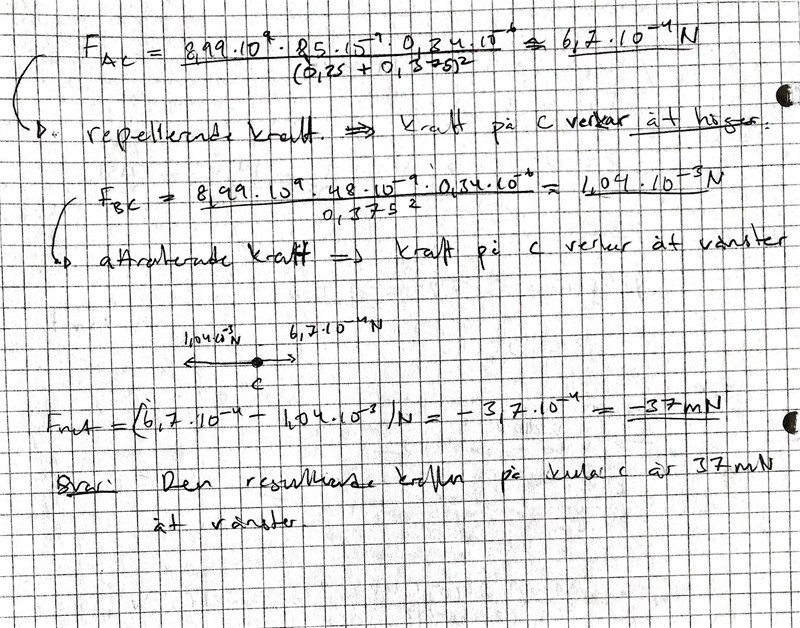 F_AC = 8,99·10⁹ · 85·10⁻⁹ · 0,34·10⁻⁶ / (0,25 + 0,375)² ≈ 6,7·10⁻⁴ N
repellerande kraft. ⇒ kraft på C verkar åt höger.
F_BC = 8,99·10⁹ · 48·10⁻⁹ · 0,34·10⁻⁶ / 0,375² = 1,04·10⁻³ N
attraherande kraft ⇒ kraft på C verkar åt vänster
1,04·10⁻³N 6,7·10⁻⁴N
C
Fnet = (6,7·10⁻⁴ − 1,04·10⁻³)N = −3,7·10⁻⁴ = −37mN
Svar: Den resulterande kraften på kula C är 37mN
åt vänster.